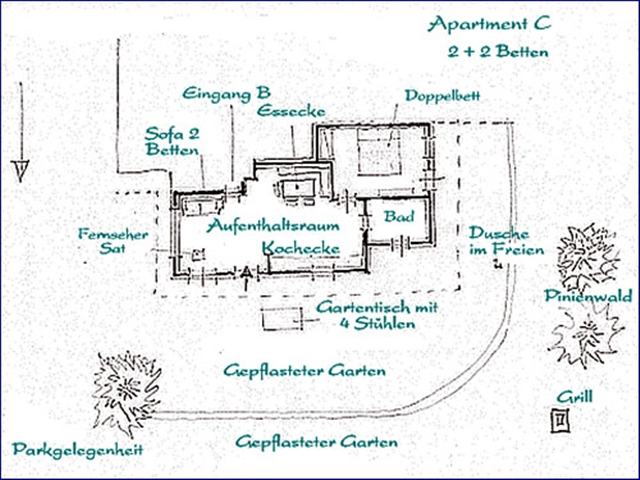 Apartment C
2 + 2 Betten
Eingang B
Doppelbett
Essecke
Sofa 2
Betten
Bad
Aufenthaltsraum
Fernseher
Sat
Kochecke
Dusche
im Freien
Pinienwald
Gartentisch mit
4 Stühlen
Gepflasteter Garten
Grill
Gepflasteter Garten
Parkgelegenheit